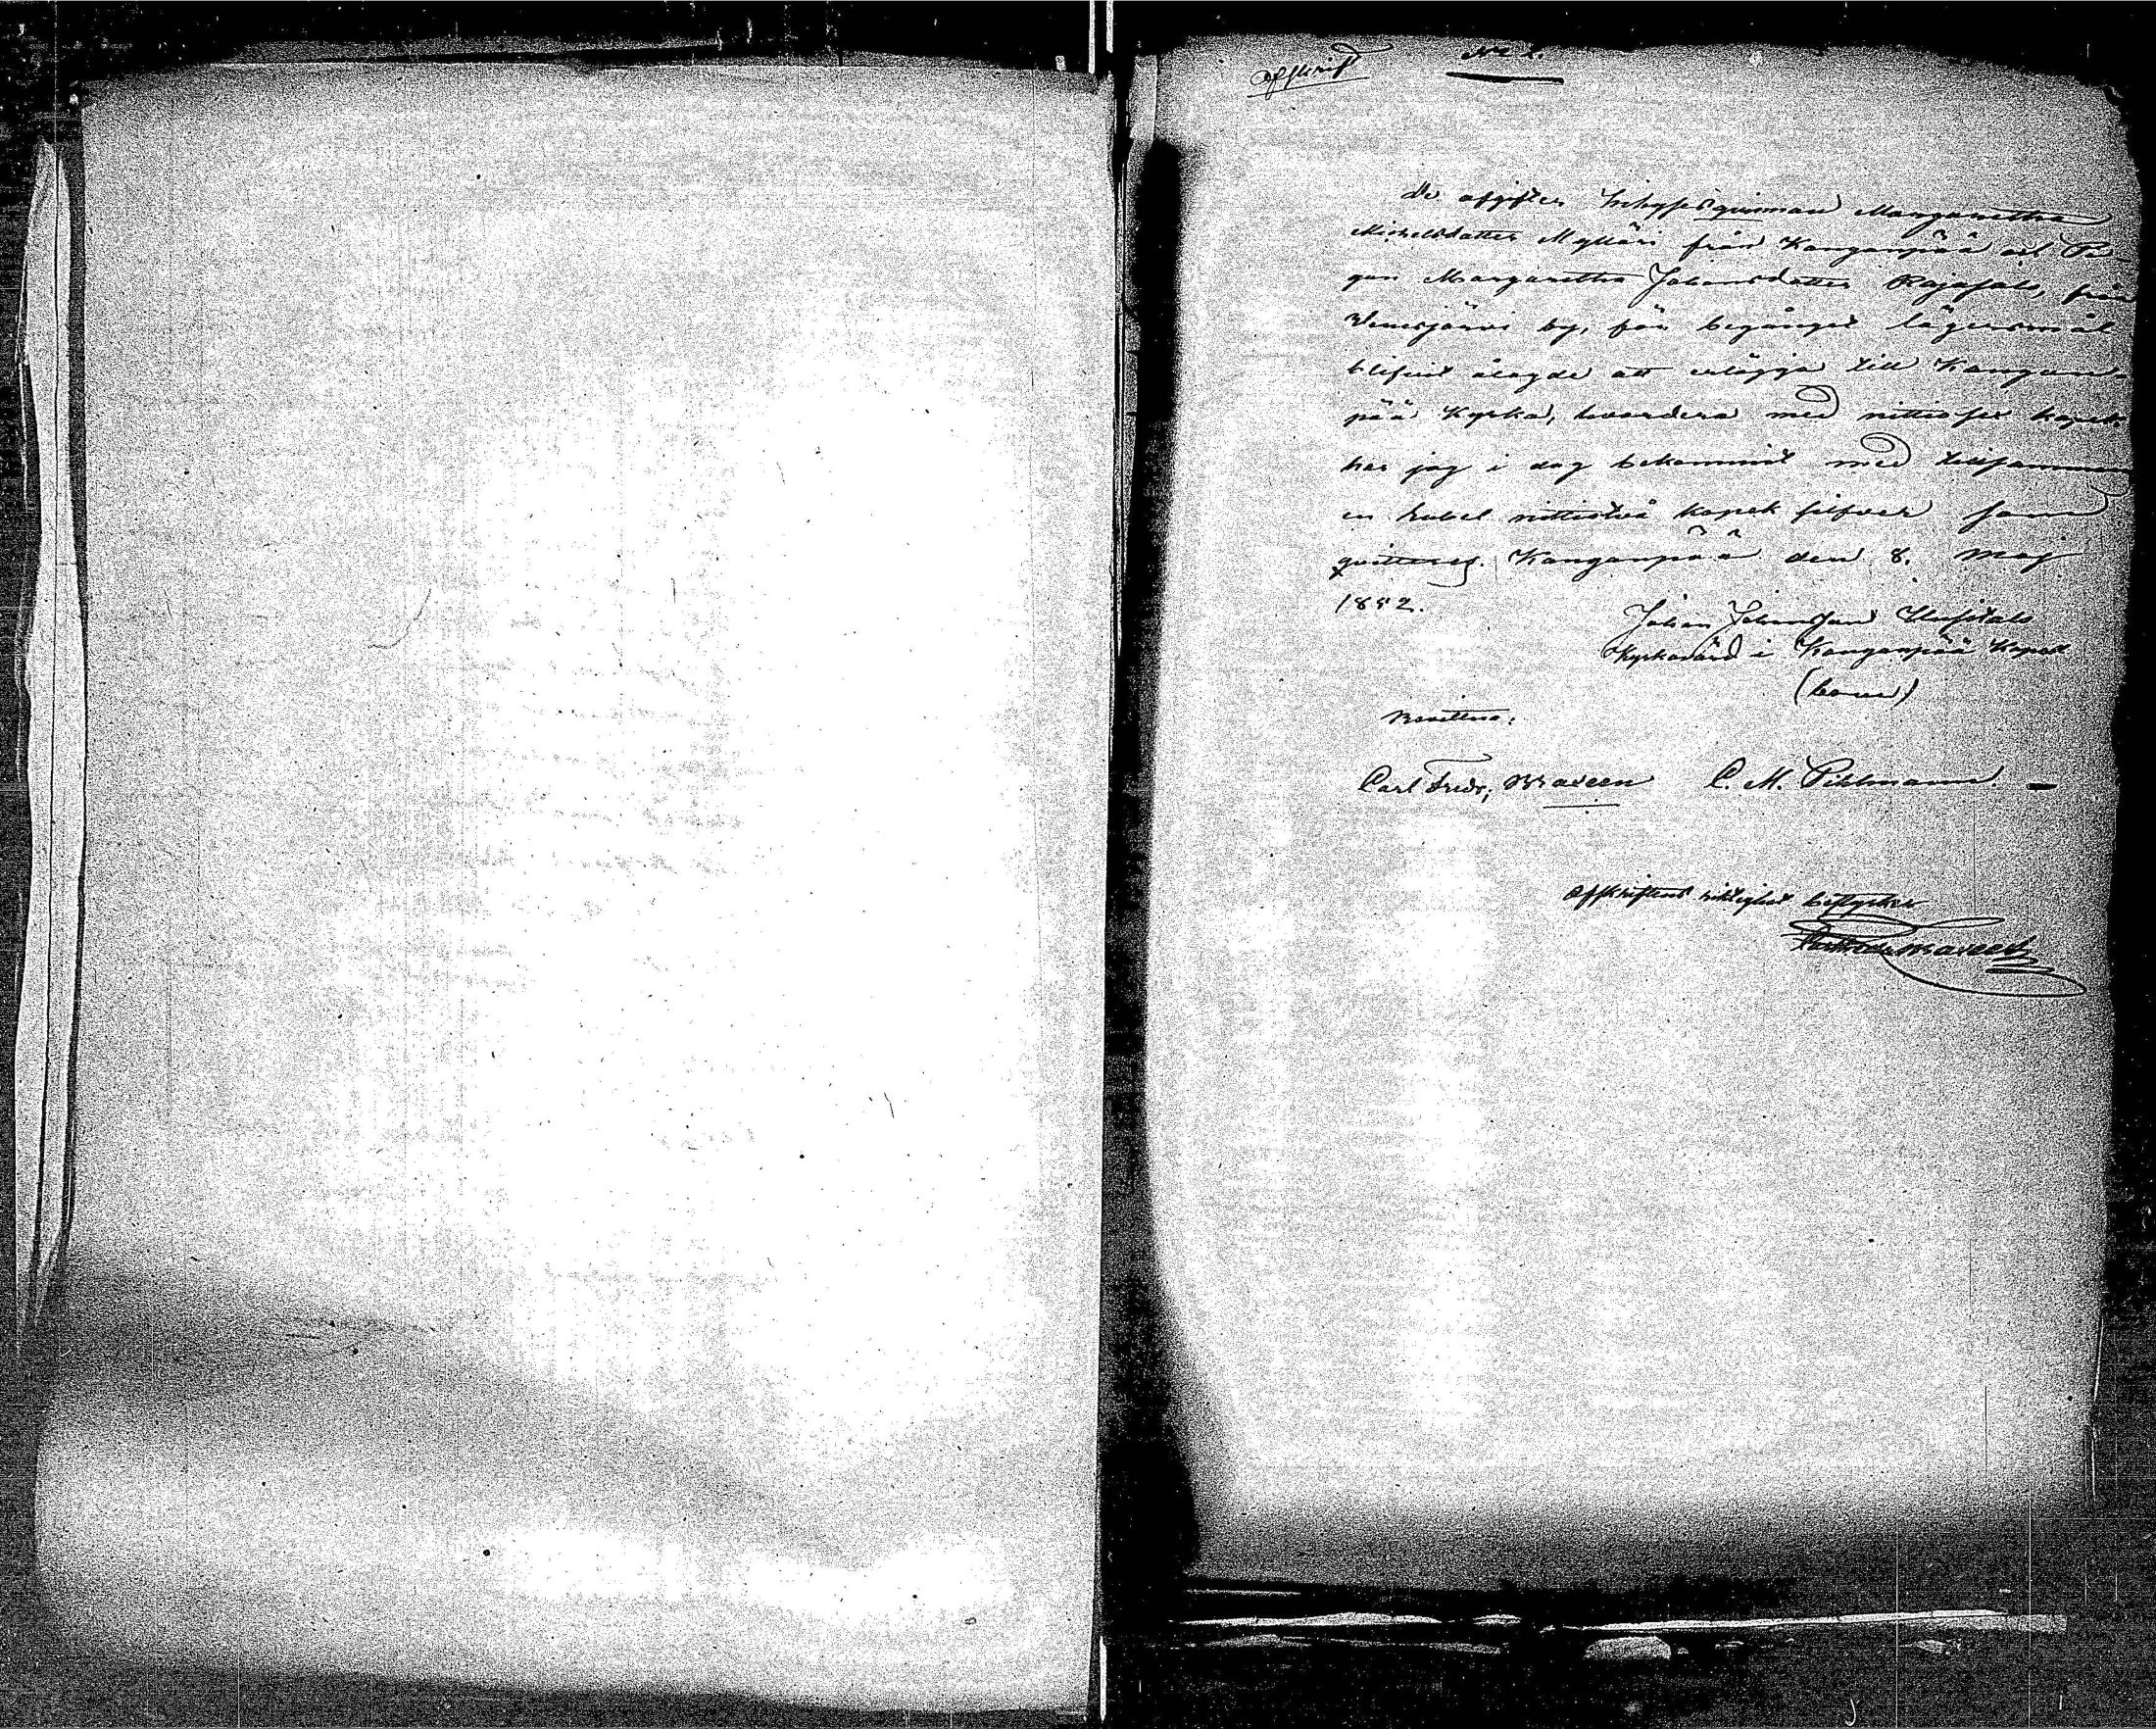 Afskrift
No 2.
De afgifter Inhyses qvinnan Margaretha
Michelsdotter Mylläri från Kanganpää och Pi-
gan Margaretha Johansdotter Rajasalo, från
Venesjärvi by, för begånget lägersmål
blifvit ålagde att erlägga till Kangan-
pää Kyrka, hvardera med nittiosex kopek,
har jag i dag bekommit med tillsamman
en rubel nittiotvå kopek silfver som
qvitteras. Kanganpää den 8. Maj
1852.
Johan Johansson
Kyrkovärd i Kanganpää Kapell
(bomärke)
Bevittna:
Carl Fredr; C. M. Pihlman. —
Afskriftens riktighet bestyrker